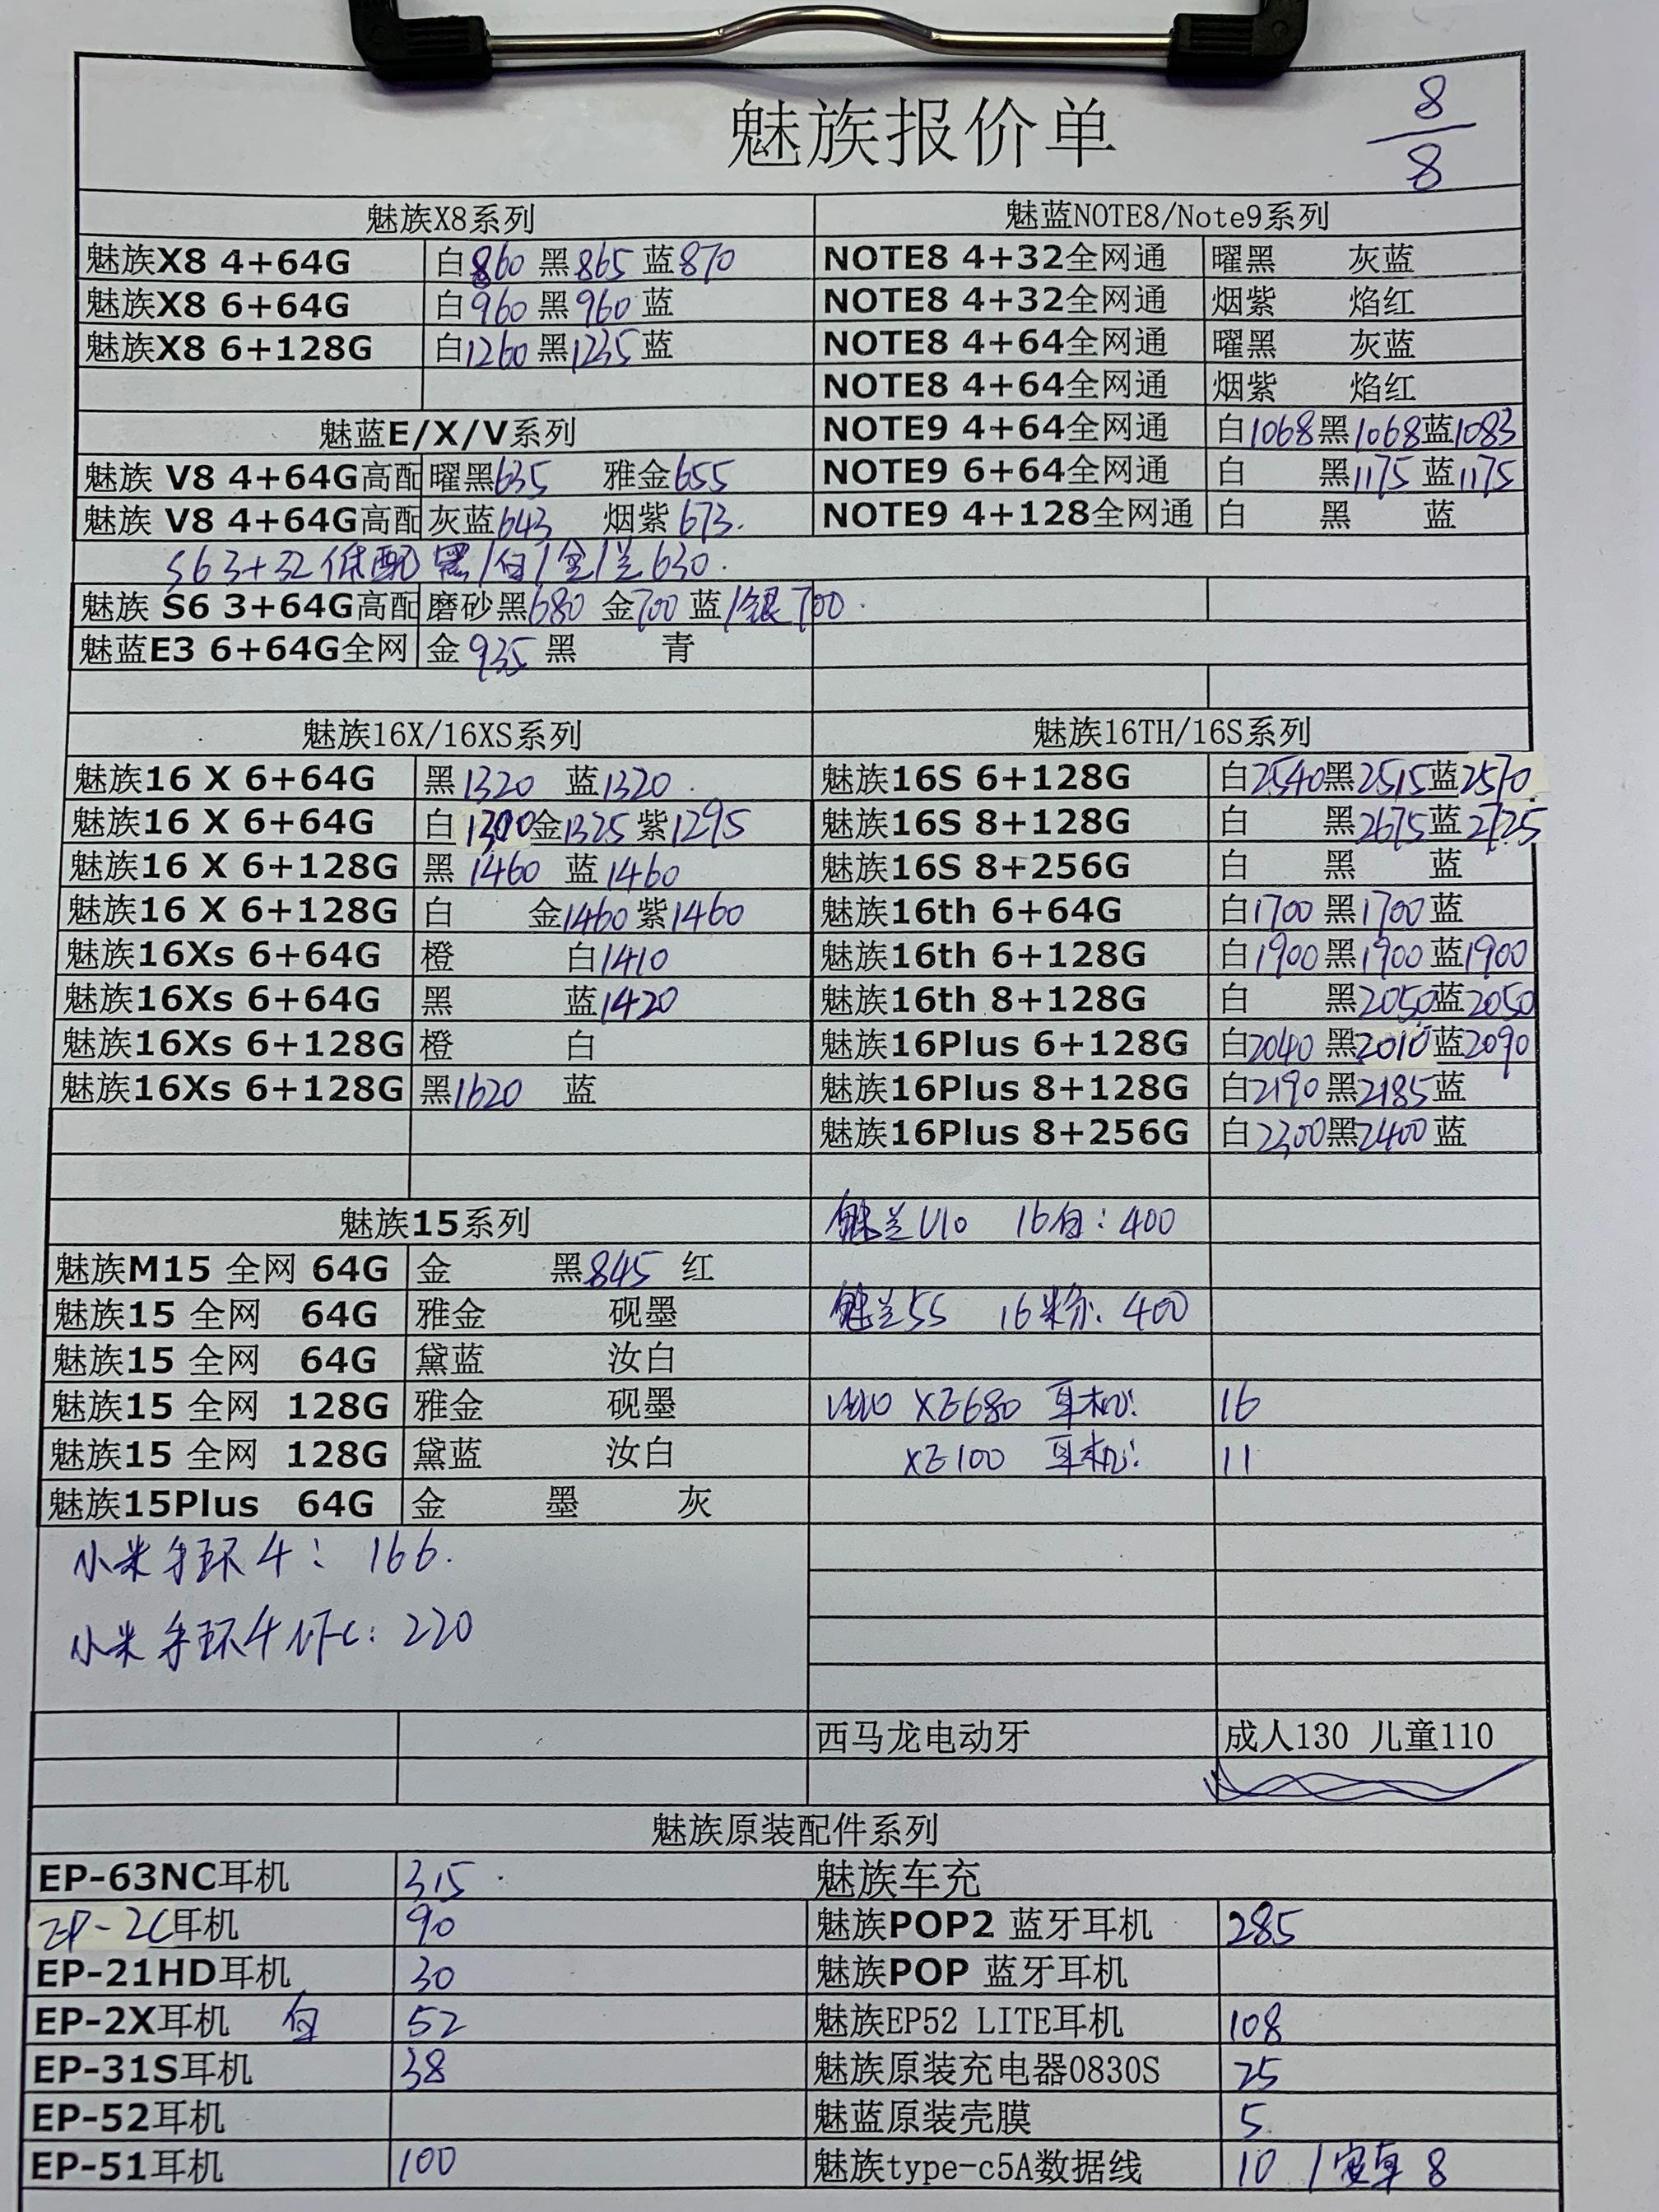 魅族报价单
8/8
魅族X8系列
魅族X8 4+64G 白860 黑865 蓝870
魅族X8 6+64G 白960 黑960 蓝
魅族X8 6+128G 白1260 黑1235 蓝
魅蓝E/X/V系列
魅族 V8 4+64G高配 曜黑635 雅金655
魅族 V8 4+64G高配 灰蓝643 烟紫673.
S6 3+32低配 黑/白/金/兰630.
魅族 S6 3+64G高配 磨砂黑680 金700 蓝/银700.
魅蓝E3 6+64G全网 金935 黑 青
魅蓝NOTE8/Note9系列
NOTE8 4+32全网通 曜黑 灰蓝
NOTE8 4+32全网通 烟紫 焰红
NOTE8 4+64全网通 曜黑 灰蓝
NOTE8 4+64全网通 烟紫 焰红
NOTE9 4+64全网通 白1068黑1068蓝1083
NOTE9 6+64全网通 白 黑1175 蓝1175
NOTE9 4+128全网通 白 黑 蓝
魅族16X/16XS系列
魅族16 X 6+64G 黑1320 蓝1320.
魅族16 X 6+64G 白1300金1325 紫1295
魅族16 X 6+128G 黑1460 蓝1460
魅族16 X 6+128G 白 金1460紫1460
魅族16Xs 6+64G 橙 白1410
魅族16Xs 6+64G 黑 蓝1420
魅族16Xs 6+128G 橙 白
魅族16Xs 6+128G 黑1620 蓝
魅族16TH/16S系列
魅族16S 6+128G 白2540黑2515蓝2570
魅族16S 8+128G 白 黑2675蓝2725
魅族16S 8+256G 白 黑 蓝
魅族16th 6+64G 白1700 黑1700蓝
魅族16th 6+128G 白1900黑1900蓝1900
魅族16th 8+128G 白 黑2050蓝2050
魅族16Plus 6+128G 白2040 黑2010蓝2090
魅族16Plus 8+128G 白2190黑2185蓝
魅族16Plus 8+256G 白2300黑2400蓝
魅族15系列
魅族M15 全网 64G 金 黑845 红
魅族15 全网 64G 雅金 砚墨
魅族15 全网 64G 黛蓝 汝白
魅族15 全网 128G 雅金 砚墨
魅族15 全网 128G 黛蓝 汝白
魅族15Plus 64G 金 墨 灰
魅兰U10 16白:400
魅兰5S 16米粉:400
XE680 耳机: 16
XE100 耳机: 11
小米手环4: 166.
小米手环4 : 220
西马龙电动牙 成人130 儿童110
魅族原装配件系列
EP-63NC耳机 315.
EP-2C耳机 90
EP-21HD耳机 30
EP-2X耳机 白 52
EP-31S耳机 38
EP-52耳机
EP-51耳机 100
魅族车充
魅族POP2 蓝牙耳机 285
魅族POP 蓝牙耳机
魅族EP52 LITE耳机 108
魅族原装充电器0830S 25
魅蓝原装壳膜 5
魅族type-c5A数据线 10 /安卓 8